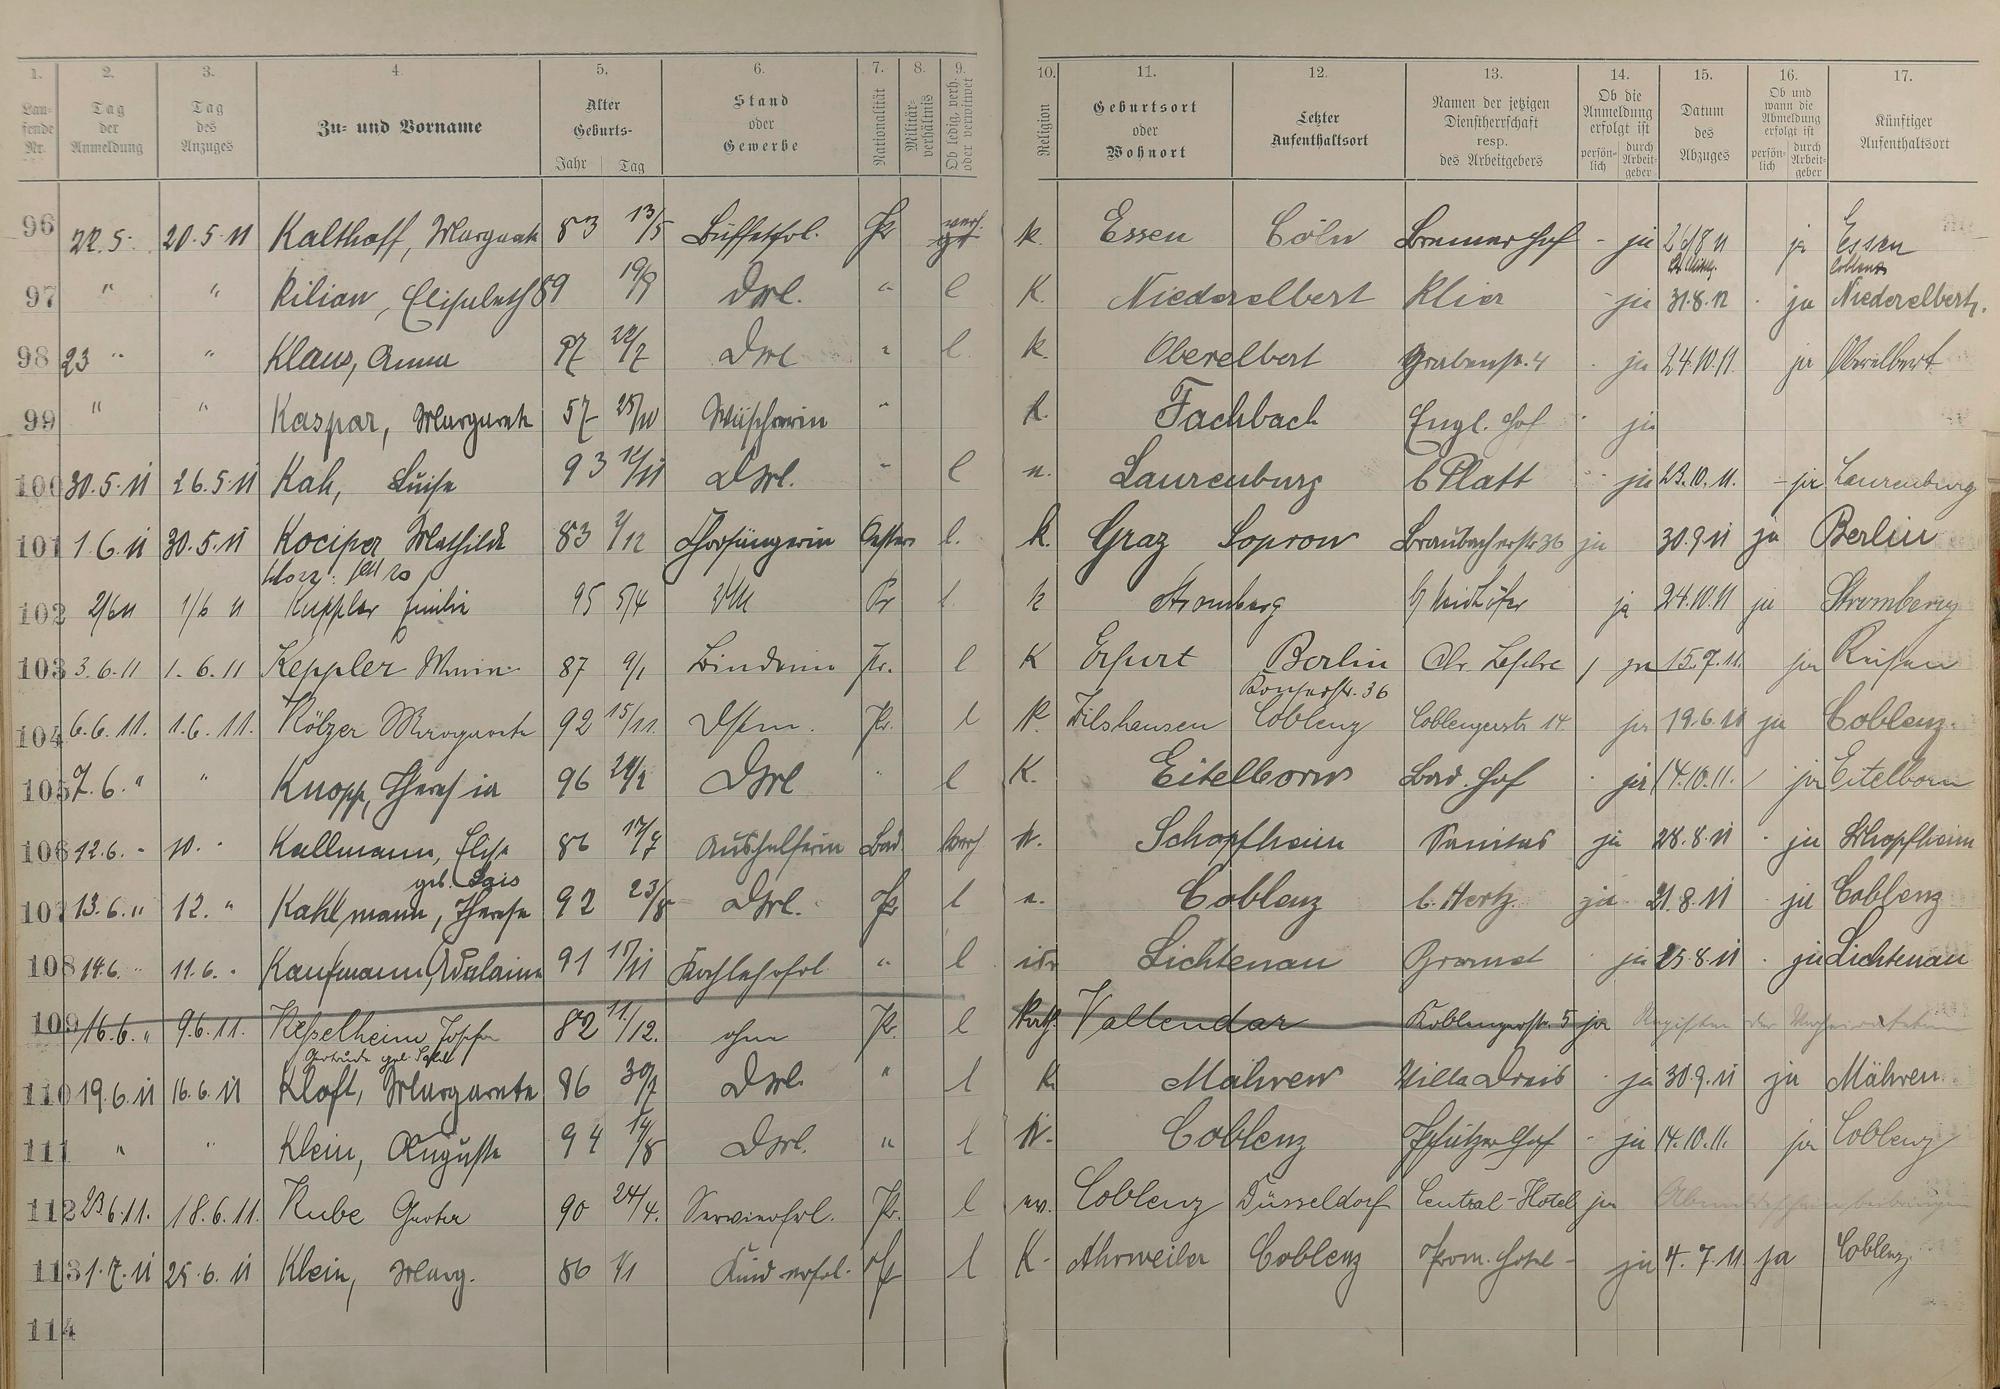 1. 2. 3. 4. 5. 6. 7. 8. 9. 10. 11. 12. 13. 14. 15. 16. 17.
Lau-fende Nr. Tag der Anmeldung Tag des Anzuges Zu- und Vorname Alter Geburts- Jahr Tag Stand oder Gewerbe Nationalität Militär-verhältnis Ob ledig, verh. oder verwitwet Religion Geburtsort oder Wohnort Letzter Aufenthaltsort Namen der jetzigen Dienstherrschaft resp. des Arbeitgebers Ob die Anmeldung erfolgt ist persön-lich durch Arbeit-geber Datum des Abzuges Ob und wann die Abmeldung erfolgt ist persön-lich durch Arbeit-geber Künftiger Aufenthaltsort
96 22.5. 20.5.11 Kalthoff, Margareth 83 13/5 Büffetfrl. Pr verh. k. Essen Cöln Bremerhof - ja ja Essen
Coblenz
97 " " Kilian, Elisabeth 89 19/9 Dml. " l K. Niederelbert Klier - ja 31.8.12 ja Niederelbert.
98 23 " " Klaus, Anna 97 Dml " l. k. Oberelbert Grabenstr. 4 ja 24.10.11. ja Oberelbert
99 " " Kaspar, Margareth 57 25/10 Wäscherin " k. Fachbach Engl. Hof ja
100 30.5.11 26.5.11 Kah, Luise 93 12/11 Dml. " l Laurenburg b Platt ja 23.10.11. - ja Laurenburg
101 1.6.11 30.5.11 Kociper Mathilde 83 2/12 Chorsängerin Oester. l. k. Graz Sopron Braubacherstr 36 ja 30.9.11 ja Berlin
102 2/6 11 1/6 11 Keppler Emilie 95 5/4 Pr l. k Stromberg ja 24.10.11 ja Stromberg
103 3.6.11 1.6.11 Keppler 87 9/1 Pr. l K Erfurt Berlin ja 15.7.11. ja
Konserstr. 36
104 6.6.11. 1.6.11. Kölzer Margarete 92 15/11. Pr. l K. Coblenz Coblenzerstr 14 ja 19.6.11 ja Coblenz.
105 7.6. " " Knopp, Theresia 96 Dml " l K. Eitelborn Bad. Hof ja 14.10.11. ja Eitelborn
106 12.6. " 10. " Kallmann, Elise 86 17/7 Aushelferin Bad. verh K. Schopfheim Sanitas ja 28.8.11 ja Schopfheim
geb. Sais
107 13.6. " 12. " Kahlmann, Therese 92 23/8 Dml. Pr l Coblenz b. Hertz. ja 21.8.11 ja Coblenz
108 14.6. " 11.6. " Kaufmann, Adelaine 91 15/11 Kochlehrfrl " l isr Lichtenau ja 25.8.11 ja Lichtenau
109 16.6. " 9.6.11. Keßelheim, Josef 82 11./12. ohne Pr. l Kath. Vallendar Koblenzerstr. 5 ja
110 19.6.11 16.6.11 Kloft, Margarete 86 Dml. " l k. Mähren Villa Drais ja 30.9.11 ja Mähren.
111 " " Klein, Auguste 94 14/8 Dml. " l K. Coblenz Pfälzer Hof - ja 14.10.11. ja Coblenz
112 23.6.11. 18.6.11. Kube 90 24/4. Servierfrl. Pr. l ev. Coblenz Düsseldorf Central-Hotel ja
113 1.7.11 25.6.11 Klein, Marg. 86 1/1 Kinderfrl. Pr l K. Ahrweiler Coblenz Prom. Hotel - ja 4.7.11. ja Coblenz.
114